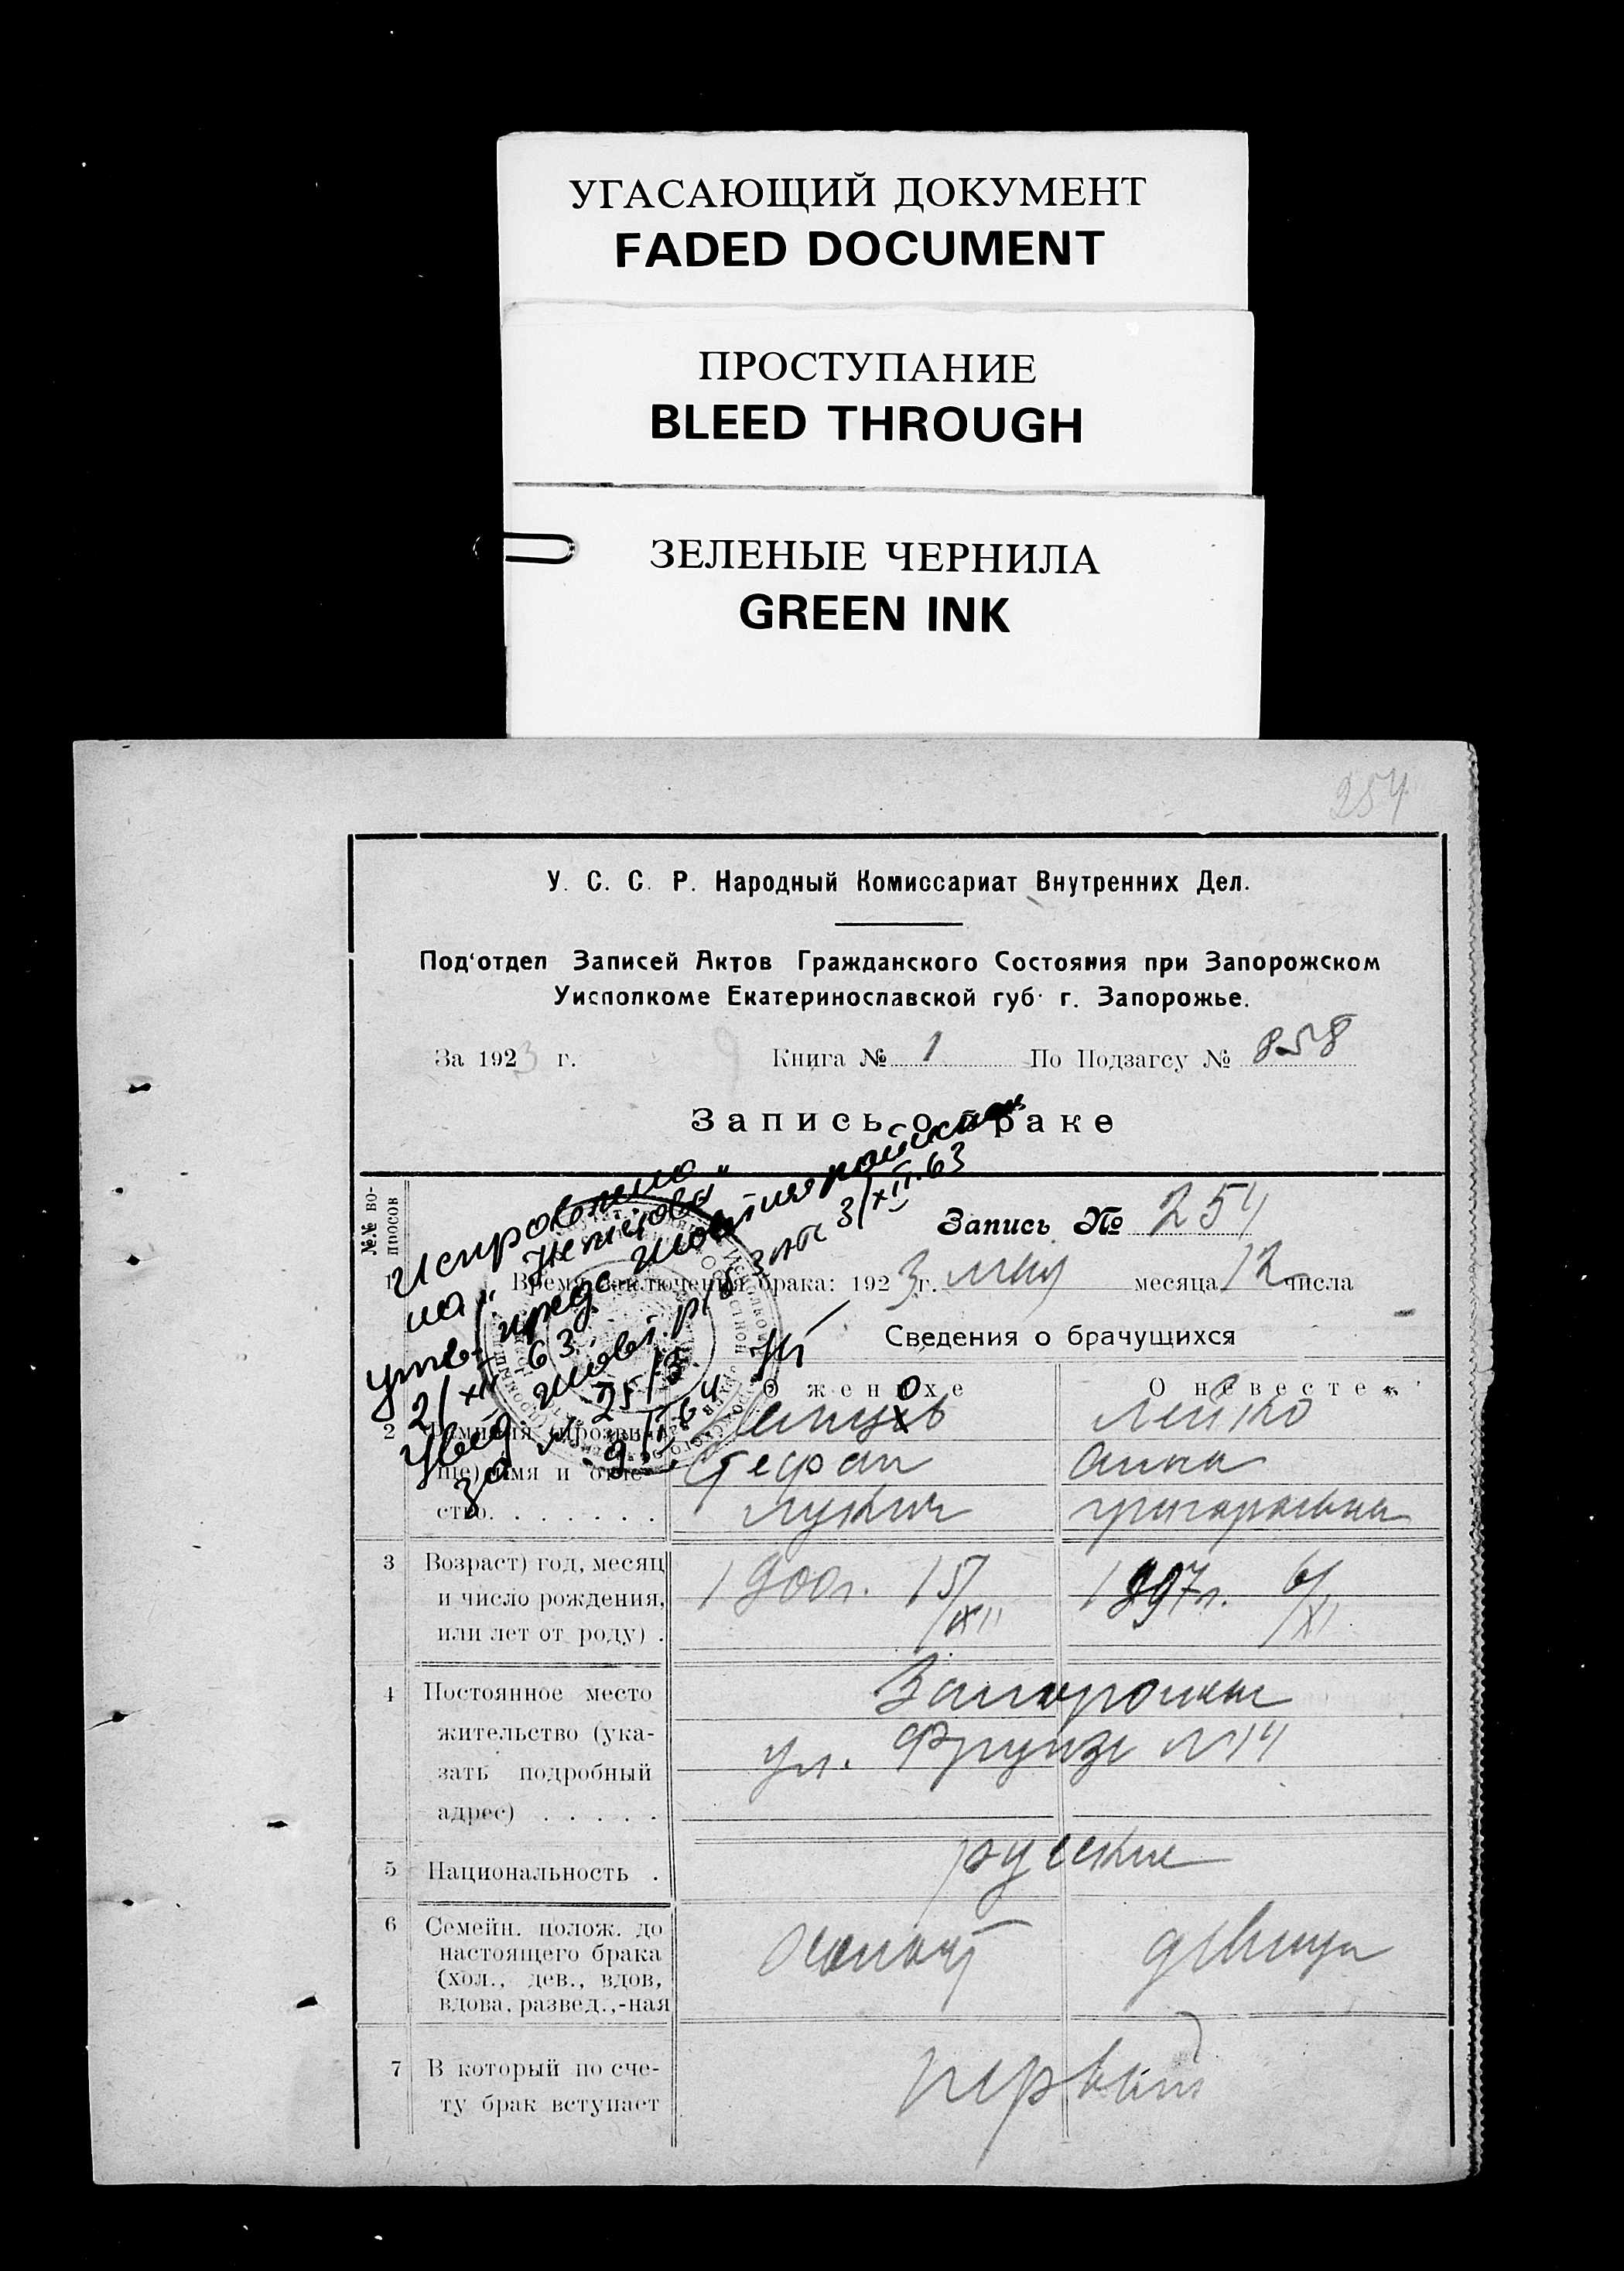 УГАСАЮЩИЙ ДОКУМЕНТ
FADED DOCUMENT
ПРОСТУПАНИЕ
BLEED THROUGH
ЗЕЛЕНЫЕ ЧЕРНИЛА
GREEN INK
254
У. С. С. Р. Народный Комиссариат Внутренних Дел.
Под‘отдел Записей Актов Гражданского Состояния при Запорожском
Уисполкоме Екатеринославской губ. г. Запорожье.
За 1923 г. Книга № 1 По Подзагсу № 858
Запись о браке
№№ во-
просов
Исправлено
на
3/XII.63
2/XII 63.
№ 25/3
за 9/I 64
Запись № 254
1 Время заключения брака: 1923 г. мая месяца 12 числа
Сведения о брачущихся
О женихе О невесте
2 Фамилия (прозви-
ще) имя и отче-
ство. . . . . . .
Лейко
Стефан Анна
Лукич Григорьевна
3 Возраст) год, месяц
и число рождения,
или лет от роду) .
1900 г. 15/XII 1897 г. 6/XI
4 Постоянное место
жительство (ука-
зать подробный
адрес) . . . . .
Запорожье
ул. Фрунзе №14
5 Национальность .
русские
6 Семейн. полож. до
настоящего брака
(хол., дев., вдов,
вдова, развед.,-ная
холост девица
7 В который по сче-
ту брак вступает
первый